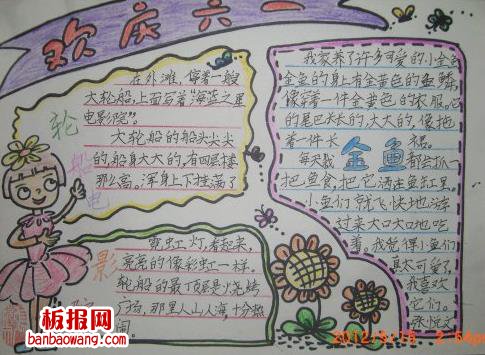 欢庆六一
轮船电影院
在外滩,停着一艘
大轮船,上面写着“海蓝之星
电影院”。
大轮船的船头尖尖
的,船身大大的,有四层楼
那么高。浑身上下挂满了
霓虹灯,看起来,
亮亮的像彩虹一样。
轮船的最顶层是烧烤
广场,那里人山人海十分热
闹
金鱼
我家养了许多可爱的小金鱼
金鱼的身上有金黄色的鱼鳞,
像穿着一件金黄色的衣服,它
的尾巴长长的,大大的,像拖
着一件长裙。
每天我都会抓一
把鱼食,把它洒在鱼缸里。
小鱼们就飞快地游
过来大口大口地吃
着。我觉得小鱼们
真太可爱了,
我喜欢
它们。
板报网
www.banbaowang.com